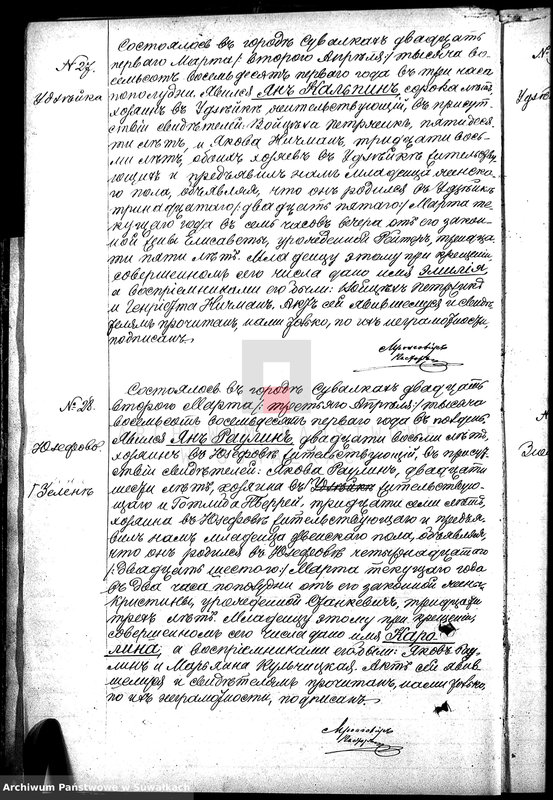 № 27.
Удзѣйка
Состоялось въ городѣ Сувалкахъ двадцать
перваго Марта /: второго Апрѣля :/ тысяча во-
семьсотъ восемьдесятъ перваго года въ три часа
пополудни. Явился Янъ Кальпинъ, сорока лѣтъ,
хозяинъ въ Удзѣйкѣ жительствующій, въ присут-
ствіи свидѣтелей: Войцѣха Петрѹчикъ, пятидеся-
ти лѣтъ, и Якова Ничманъ, тридцати вось-
ми лѣтъ, обоихъ хозяевъ въ Удзѣйкѣ жительству-
ющихъ и предъявилъ намъ младенца женска-
го пола, объявляя, что онъ родился въ Удзѣйкѣ
тринадцатаго /: двадцать пятаго :/ Марта те-
кущаго года въ семь часовъ вечера отъ его закон-
ной жены Елисаветы, урожденной Рейтеръ, тридца-
ти пяти лѣтъ. Младенцу этому при крещеніи,
совершенномъ сего числа дано имя Эмилія,
а воспріемниками его были: Войцѣхъ
и Генріетта Ничманъ. Актъ сей явившемуся и свидѣ-
телямъ прочитанъ, нами только, по ихъ неграмотности,
подписанъ.
№ 28.
Юзефово.
Г. Зелёнъ
Состоялось въ городѣ Сувалкахъ двадцать
второго Марта /: третьяго Апрѣля :/ тысяча
восемьсотъ восемьдесятъ перваго года въ полдень.
Явился Янъ Раулинъ, двадцати восьми лѣтъ,
хозяинъ въ Юзефовѣ жительствующій, въ присут-
ствіи свидѣтелей: Якова Раулинъ, двадцати
шести лѣтъ, хозяина въ жительствую-
щаго и Готлиба Перрей, тридцати семи лѣтъ,
хозяина въ Юзефовѣ жительствующаго и предъя-
вилъ намъ младенца женскаго пола, объявляя,
что онъ родился въ Юзефовѣ четырнадцатаго
/: двадцать шестого :/ Марта текущаго года
въ два часа пополудни отъ его законной жены
Кристины, урожденной Станкевичъ, тридцати
трехъ лѣтъ. Младенцу этому при крещеніи,
совершенномъ сего числа дано имя Каро-
лина, а воспріемниками его были: Яковъ Рау-
линъ и Марьянна Кульчицкая. Актъ сей явив-
шемуся и свидѣтелямъ прочитанъ, нами только,
по ихъ неграмотности, подписанъ.
Archiwum Państwowe w Suwałkach